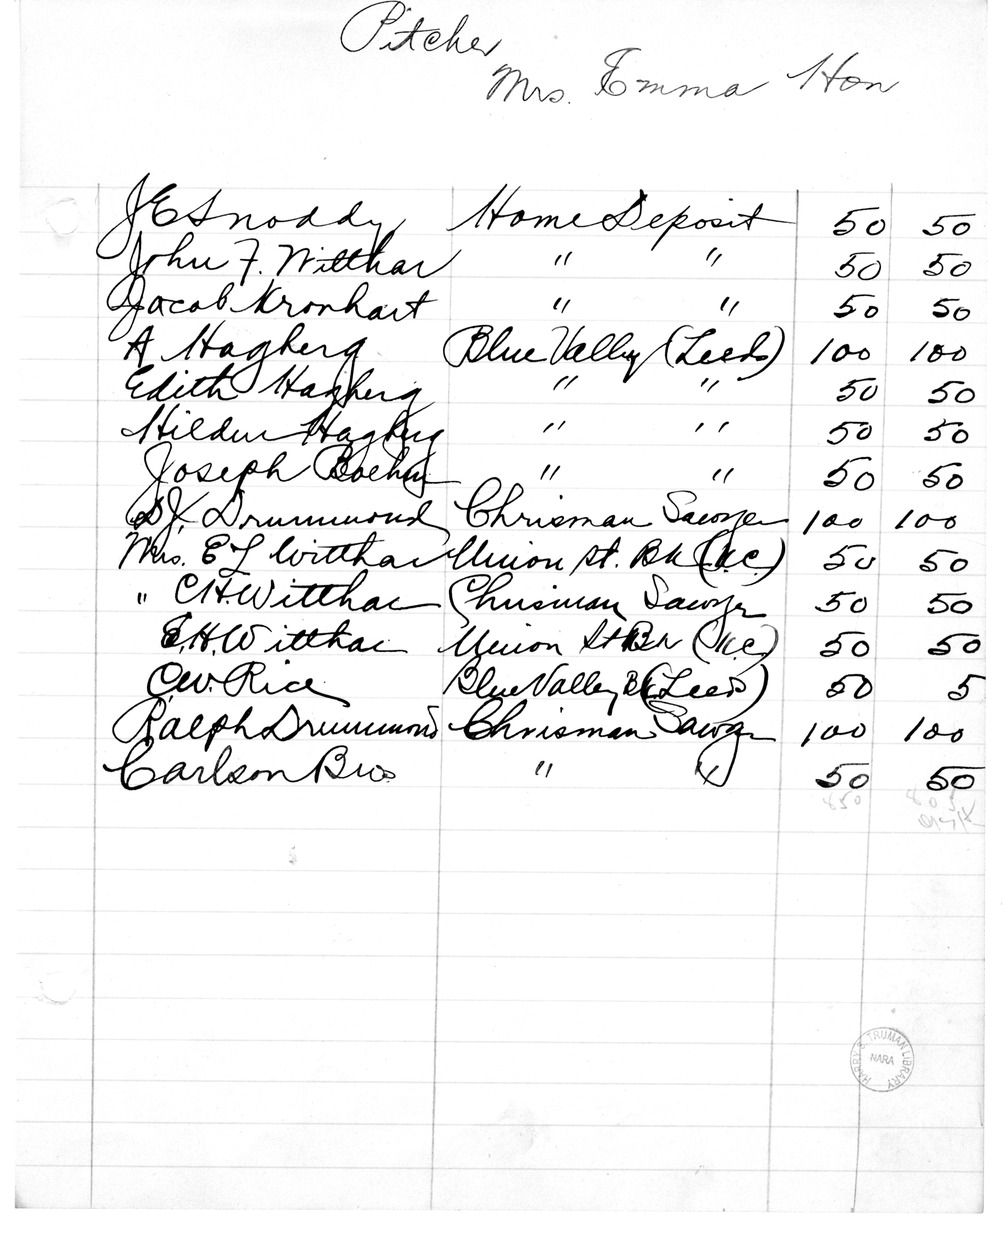 Pitcher
Mrs. Emma Hon
J E Snoddy Home Deposit 50 50
John F. Witthar " " 50 50
Jacob Kronhart " " 50 50
A Hagberg Blue Valley (Leeds) 100 100
Edith Hagberg " " 50 50
Hildur Hagberg " " 50 50
Joseph Boehm " " 50 50
D.J. Drummond Chrisman Sawyer 100 100
Mrs. E L Witthar Union St. Bk (K.C.) 50 50
" C.H. Witthar Chrisman Sawyer 50 50
E.H. Witthar Union St Bk (K.C.) 50 50
O.W. Rice Blue Valley Bk (Leeds) 50 5
Ralph Drummond Chrisman Sawyer 100 100
Carlson Bros " " 50 50
850 805
HARRY S. TRUMAN LIBRARY
NARA